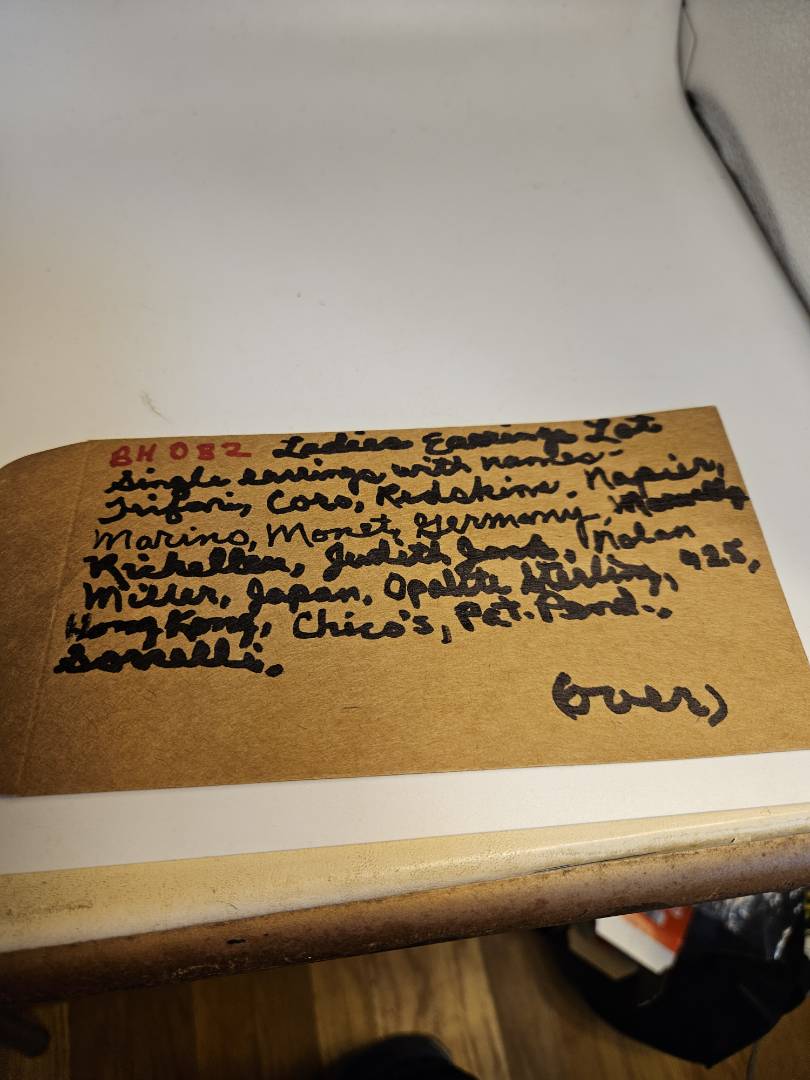 BH 082 Ladies Earrings Lot
Single earrings with names-
Trifari, Coro, Redskins, Napier,
Marino, Monet, Germany,
Richelieu, Judith Jack, Nolan
Miller, Japan, Opalite, Sterling, 925,
Hong Kong, Chico's, Pat. Pend.,
Sorrelli,
(over)